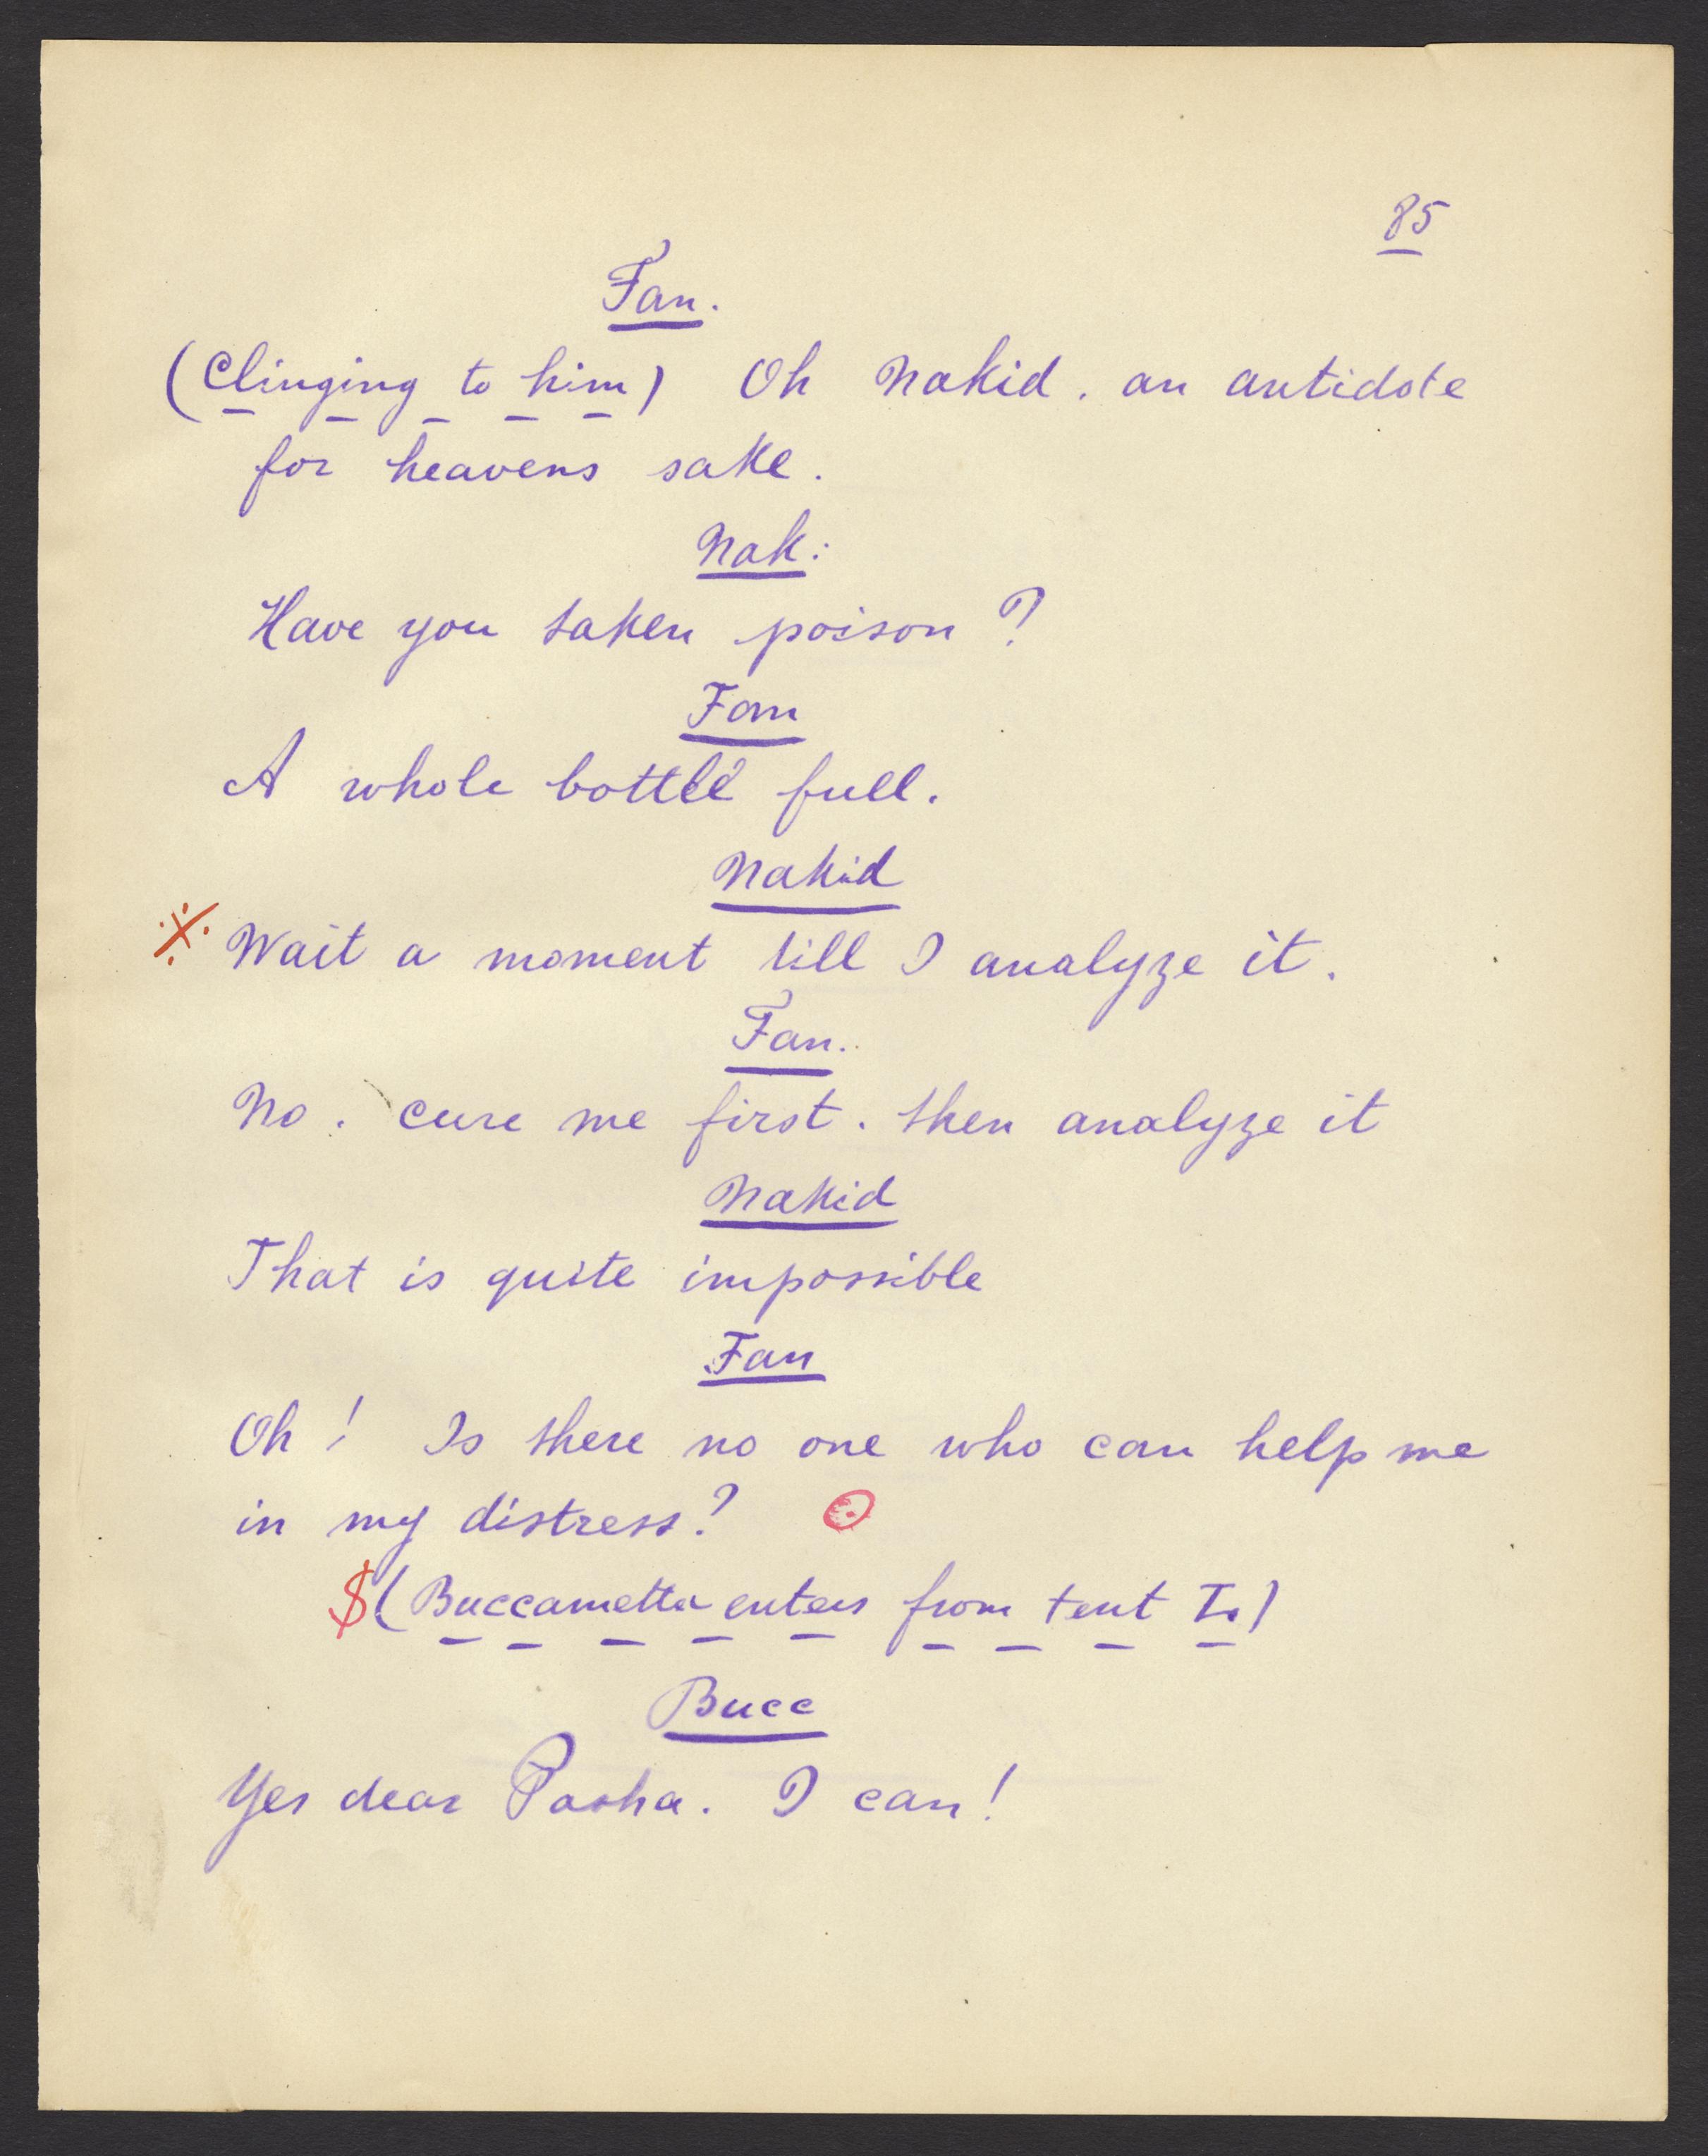 85
Fan.
(Clinging to him) Oh Nakid. an antidote
for heavens sake.
Nak:
Have you taken poison?
Fan
A whole bottle full.
Nakid
※ Wait a moment till I analyze it.
Fan.
No. cure me first. then analyze it
Nakid
That is quite impossible
Fan
Oh! Is there no one who can help me
in my distress? ⊙
$ (Buccametta enters from tent I.)
Bucc
Yes dear Pasha. I can!